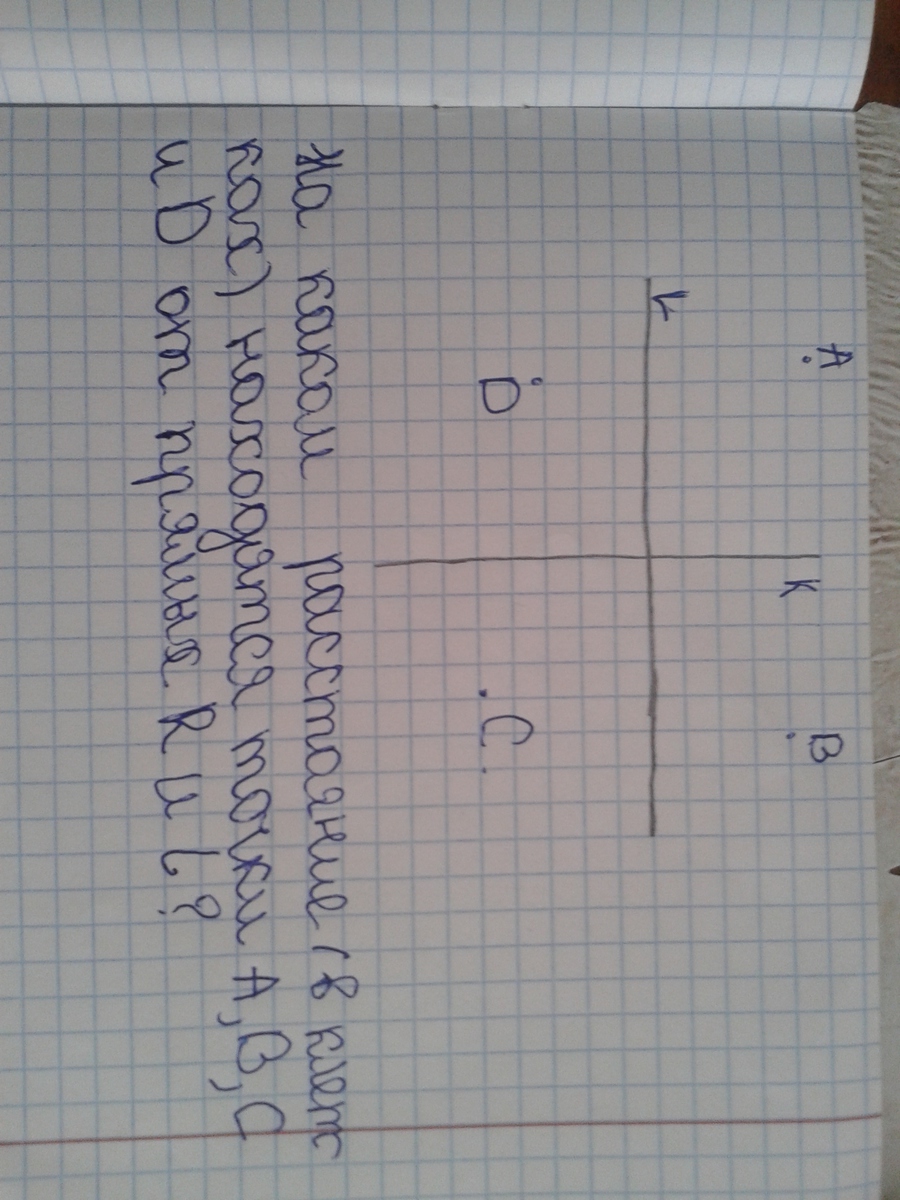 A
B
K
L
D
C
На каком расстояние (в клет
ках) находятся точки A, B, C
и D от прямые R и L?